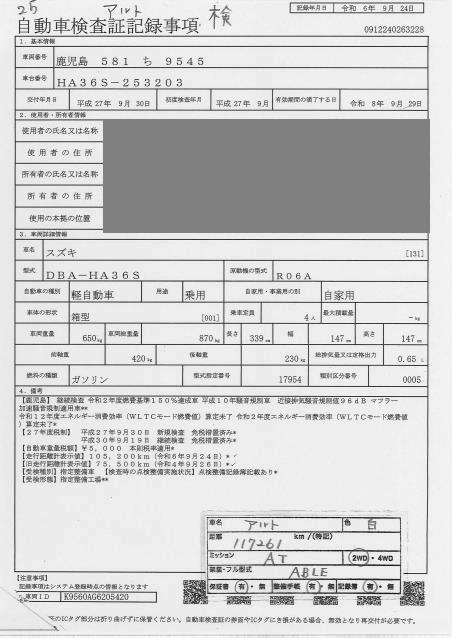 25 アルト 検
記録年月日 令和 6年 9月 24日
自動車検査証記録事項
0912240263228
1．基本情報
車両番号 鹿児島 581 ち 9545
車台番号 HA36S-253203
交付年月日 平成27年 9月 30日 初度検査年月 平成27年 9月 有効期間の満了する日 令和 8年 9月 29日
2．使用者・所有者情報
使用者の氏名又は名称
使用者の住所
所有者の氏名又は名称
所有者の住所
使用の本拠の位置
3．車両詳細情報
車名 スズキ [131]
型式 DBA-HA36S 原動機の型式 R06A
自動車の種別 軽自動車 用途 乗用 自家用・事業用の別 自家用
車体の形状 箱型 [001] 乗車定員 4人 最大積載量 -kg
車両重量 650kg 車両総重量 870kg 長さ 339cm 幅 147cm 高さ 147cm
前軸重 420kg 後軸重 230kg 総排気量又は定格出力 0.65L
燃料の種類 ガソリン 型式指定番号 17954 類別区分番号 0005
4．備考
【鹿児島】 継続検査 令和2年度燃費基準150％達成車 平成10年騒音規制車 近接排気騒音規制値96dB マフラー
加速騒音規制適用車**
令和12年度エネルギー消費効率（WLTCモード燃費値）算定未了 令和2年度エネルギー消費効率（WLTCモード燃費値
）算定未了*
【27年度税制】 平成27年9月30日 新規検査 免税措置済み*
平成30年9月19日 継続検査 免税措置済み*
【自動車重量税額】￥5,000 本則税率適用*
【走行距離計表示値】105,200km（令和6年9月24日）*✓
【旧走行距離計表示値】75,500km（令和4年9月26日）*✓
【受検種別】指定整備車 【検査時の点検整備実施状況】点検整備記録簿記載あり*
【受検形態】指定整備工場**
車名 アルト 色 白
距離 117261 km /(特記)
ミッション AT 2WD・4WD
架装・フル型式 ABLE
保証書 有・無 整備手帳 有・無 記録簿 有・無
【注意事項】
記録事項はシステム登録時点の情報となります
車両ID K9560AG6205420
のICタグ部分は折り曲げずに保管ください。自動車検査証の券面やICタグに き損がある場合、無効となり再交付が必要です。